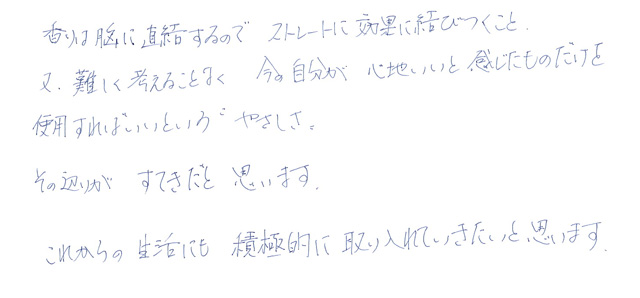 香りは脳に直結するので ストレートに効果に結びつくこと.
又、難しく考えることなく 今の自分が 心地いいと感じたものだけを
使用すればいいという やさしさ。
その辺りが すてきだと思います.
これからの生活にも 積極的に取り入れていきたいと思います.